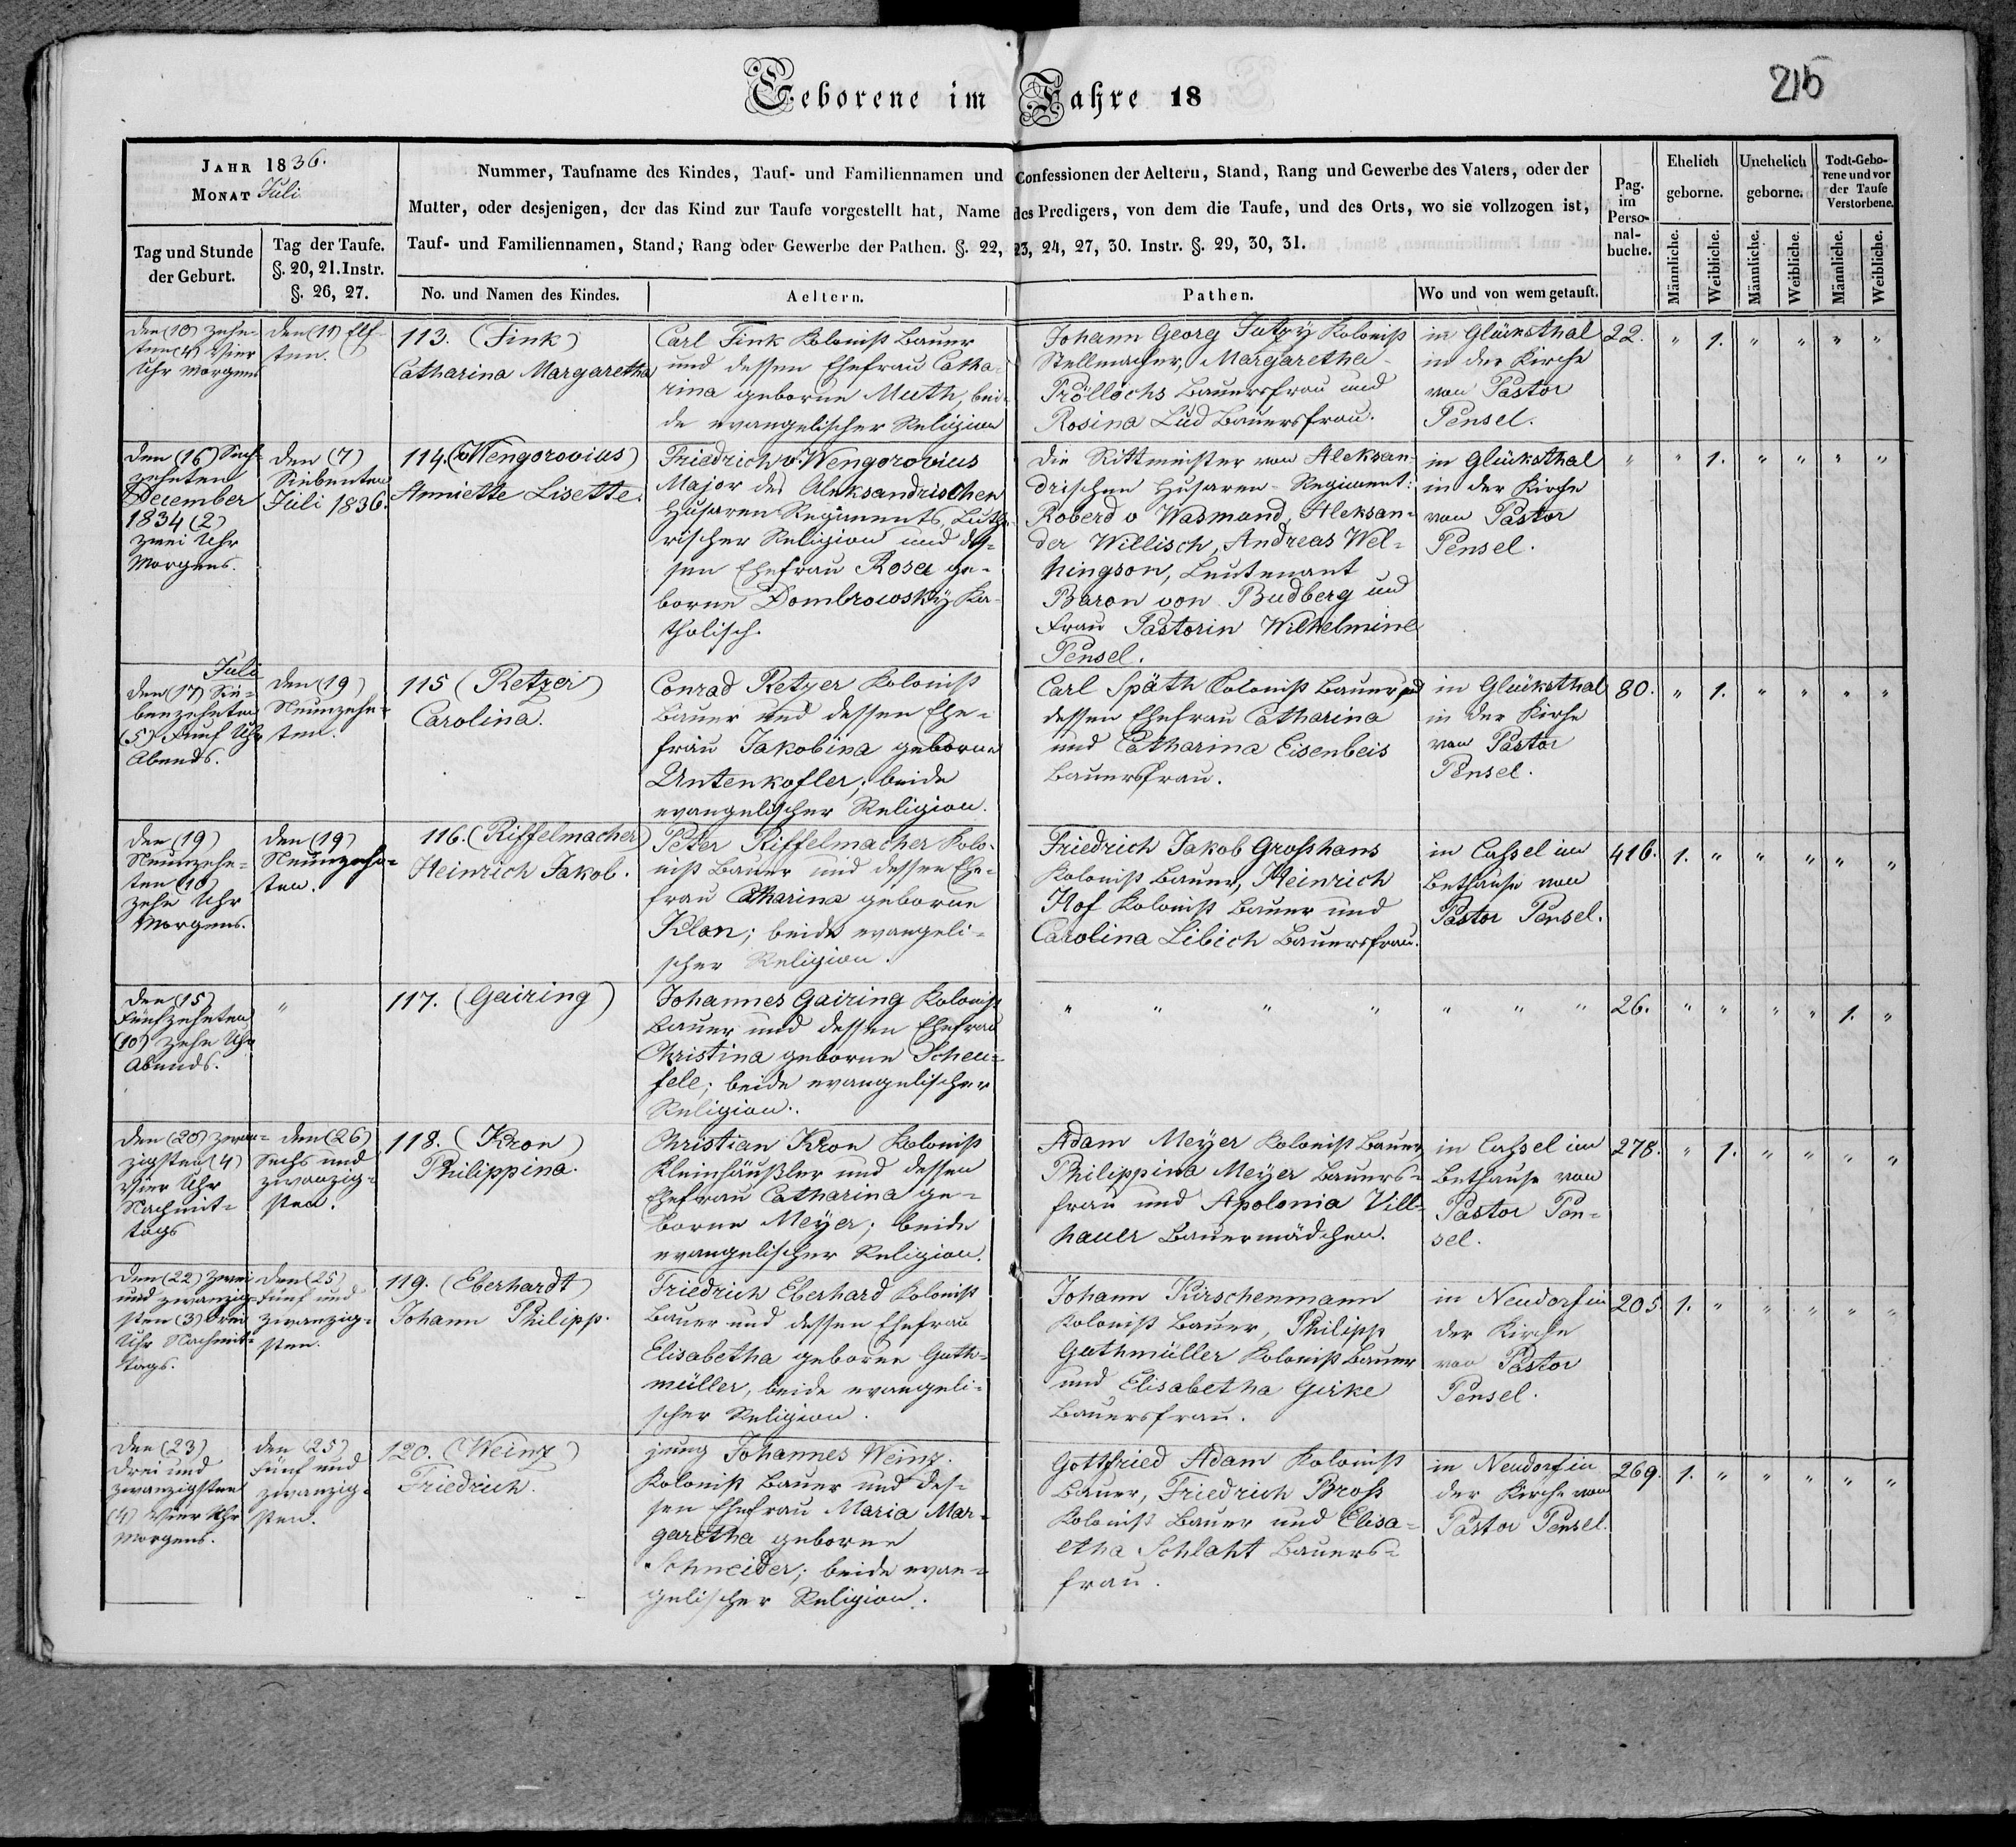 Geborene im Jahre 18
216
JAHR 1836.
MONAT Juli
Nummer, Taufname des Kindes, Tauf- und Familiennamen und Confessionen der Aeltern, Stand, Rang und Gewerbe des Vaters, oder der
Mutter, oder desjenigen, der das Kind zur Taufe vorgestellt hat, Name des Predigers, von dem die Taufe, und des Orts, wo sie vollzogen ist,
Tauf- und Familiennamen, Stand, Rang oder Gewerbe der Pathen. §. 22, 23, 24, 27, 30. Instr. §. 29, 30, 31.
Tag und Stunde
der Geburt.
Tag der Taufe.
§. 20, 21. Instr.
§. 26, 27.
No. und Namen des Kindes.
Aeltern.
Pathen.
Wo und von wem getauft.
Pag.
im
Perso-
nal-
buche.
Ehelich
geborne.
Unehelich
geborne.
Todt-Gebo-
rene und vor
der Taufe
Verstorbene.
Männliche.
Weibliche.
Männliche.
Weibliche.
Männliche.
Weibliche.
den (10) zehn-
ten (4) Vier
Uhr morgens
den (11) Elf-
ten.
113. (Fink)
Catharina Margaretha
Carl Fink Kolonist Bauer
und dessen Ehefrau Catha-
rina geborne Muth, bei-
de evangelischer Religion
Johann Georg Kolonist
Stellmacher, Margaretha
Pröllochs Bauersfrau und
Rosina Lud Bauersfrau.
in Glücksthal
in der Kirche
von Pastor
Pensel.
22. " 1. " " " "
den (16) Sech-
zehnten
December
1834 (2)
zwei Uhr
Morgens.
den (7)
Siebenten
Juli 1836.
114. (v Wengorovius)
Anniette Lisette.
Friedrich v. Wengorovius
Major des Aleksandrischen
Husaren Regiments, Luthe-
rischer Religion und des-
sen Ehefrau Rosa ge-
borne Dombrowsky Ka-
tholisch.
Die Rittmeister von Aleksan-
drischen Husaren-Regiment:
Roberd v Wasmund, Aleksan-
der Willisch, Andreas Wel-
hingson, Leutenant
Baron von Budberg und
Frau Pastorin Wilhelmine
Pensel.
in Glücksthal
in der Kirche
von Pastor
Pensel.
" " 1. " " " "
Juli
den (17) Sie-
benzehnten
(5) Fünf Uhr
Abends.
den (19)
Neunzehn-
ten.
115 (Retzer)
Carolina.
Conrad Retzer Kolonist
Bauer und dessen Ehe-
frau Jakobina geborne
Untenkofler; beide
evangelischer Religion.
Carl Späth Kolonist Bauer, und
dessen Ehefrau Catharina
und Catharina Eisenbeis
Bauersfrau.
in Glücksthal
in der Kirche
von Pastor
Pensel.
80. " 1. " " " "
den (19)
Neunzehn-
ten (10)
zehn Uhr
Morgens.
den (19)
Neunzehn-
ten.
116. (Riffelmacher)
Heinrich Jakob.
Peter Riffelmacher Kolo-
nist Bauer und dessen Ehe-
frau Catharina geborne
Klan; beide evangeli-
scher Religion.
Friedrich Jakob Großhans
Kolonist Bauer, Heinrich
Hof Kolonist Bauer und
Carolina Libich Bauersfrau.
in Cassel im
Bethause von
Pastor Pensel.
416. 1. " " " " "
den (15)
Fünfzehnten
(10) zehn Uhr
Abends.
"
117. (Gairing)
Johannes Gairing Kolonist
Bauer und dessen Ehefrau
Christina geborne Scheu-
fele; beide evangelischer
Religion.
" " " " " " "
26. " " " " 1. "
den (20) zwan-
zigsten (4)
Vier Uhr
Nachmit-
tags
den (26)
Sechs und
zwanzig-
sten.
118. (Kron)
Philippina.
Christian Kron Kolonist
Kleinhäußler und dessen
Ehefrau Catharina ge-
borne Meyer; beide
evangelischer Religion.
Adam Meyer Kolonist Bauer
Philippina Meyer Bauers-
frau und Apolonia Vill-
hauer Bauermädchen.
in Cassel im
Bethause von
Pastor Pen-
sel.
278. " 1. " " " "
den (22) Zwei
und zwanzig-
sten (3) Drei
Uhr Nachmit-
tags.
den (25)
Fünf und
zwanzig-
sten.
119. (Eberhardt)
Johann Philipp.
Friedrich Eberhard Kolonist
Bauer und dessen Ehefrau
Elisabetha geborne Guth-
müller, beide evangeli-
scher Religion.
Johann Kirschenmann
Kolonist Bauer, Philipp
Guthmüller Kolonist Bauer
und Elisabetha Girke
Bauersfrau.
in Neudorf in
der Kirche
von Pastor
Pensel.
205. 1. " " " " "
den (23)
Drei und
zwanzigsten
(4) Vier Uhr
Morgens.
den (25)
Fünf und
zwanzig-
sten.
120. (Weinz)
Friedrich.
jung Johannes Weinz.
Kolonist Bauer und des-
sen Ehefrau Maria Mar-
garetha geborne
Schneider; beide evan-
gelischer Religion.
Gottfried Adam Kolonist
Bauer, Friedrich Broß
Kolonist Bauer und Elisa-
etha Schlaht Bauers-
frau.
in Neudorf in
der Kirche von
Pastor Pensel.
269. 1. " " " " "